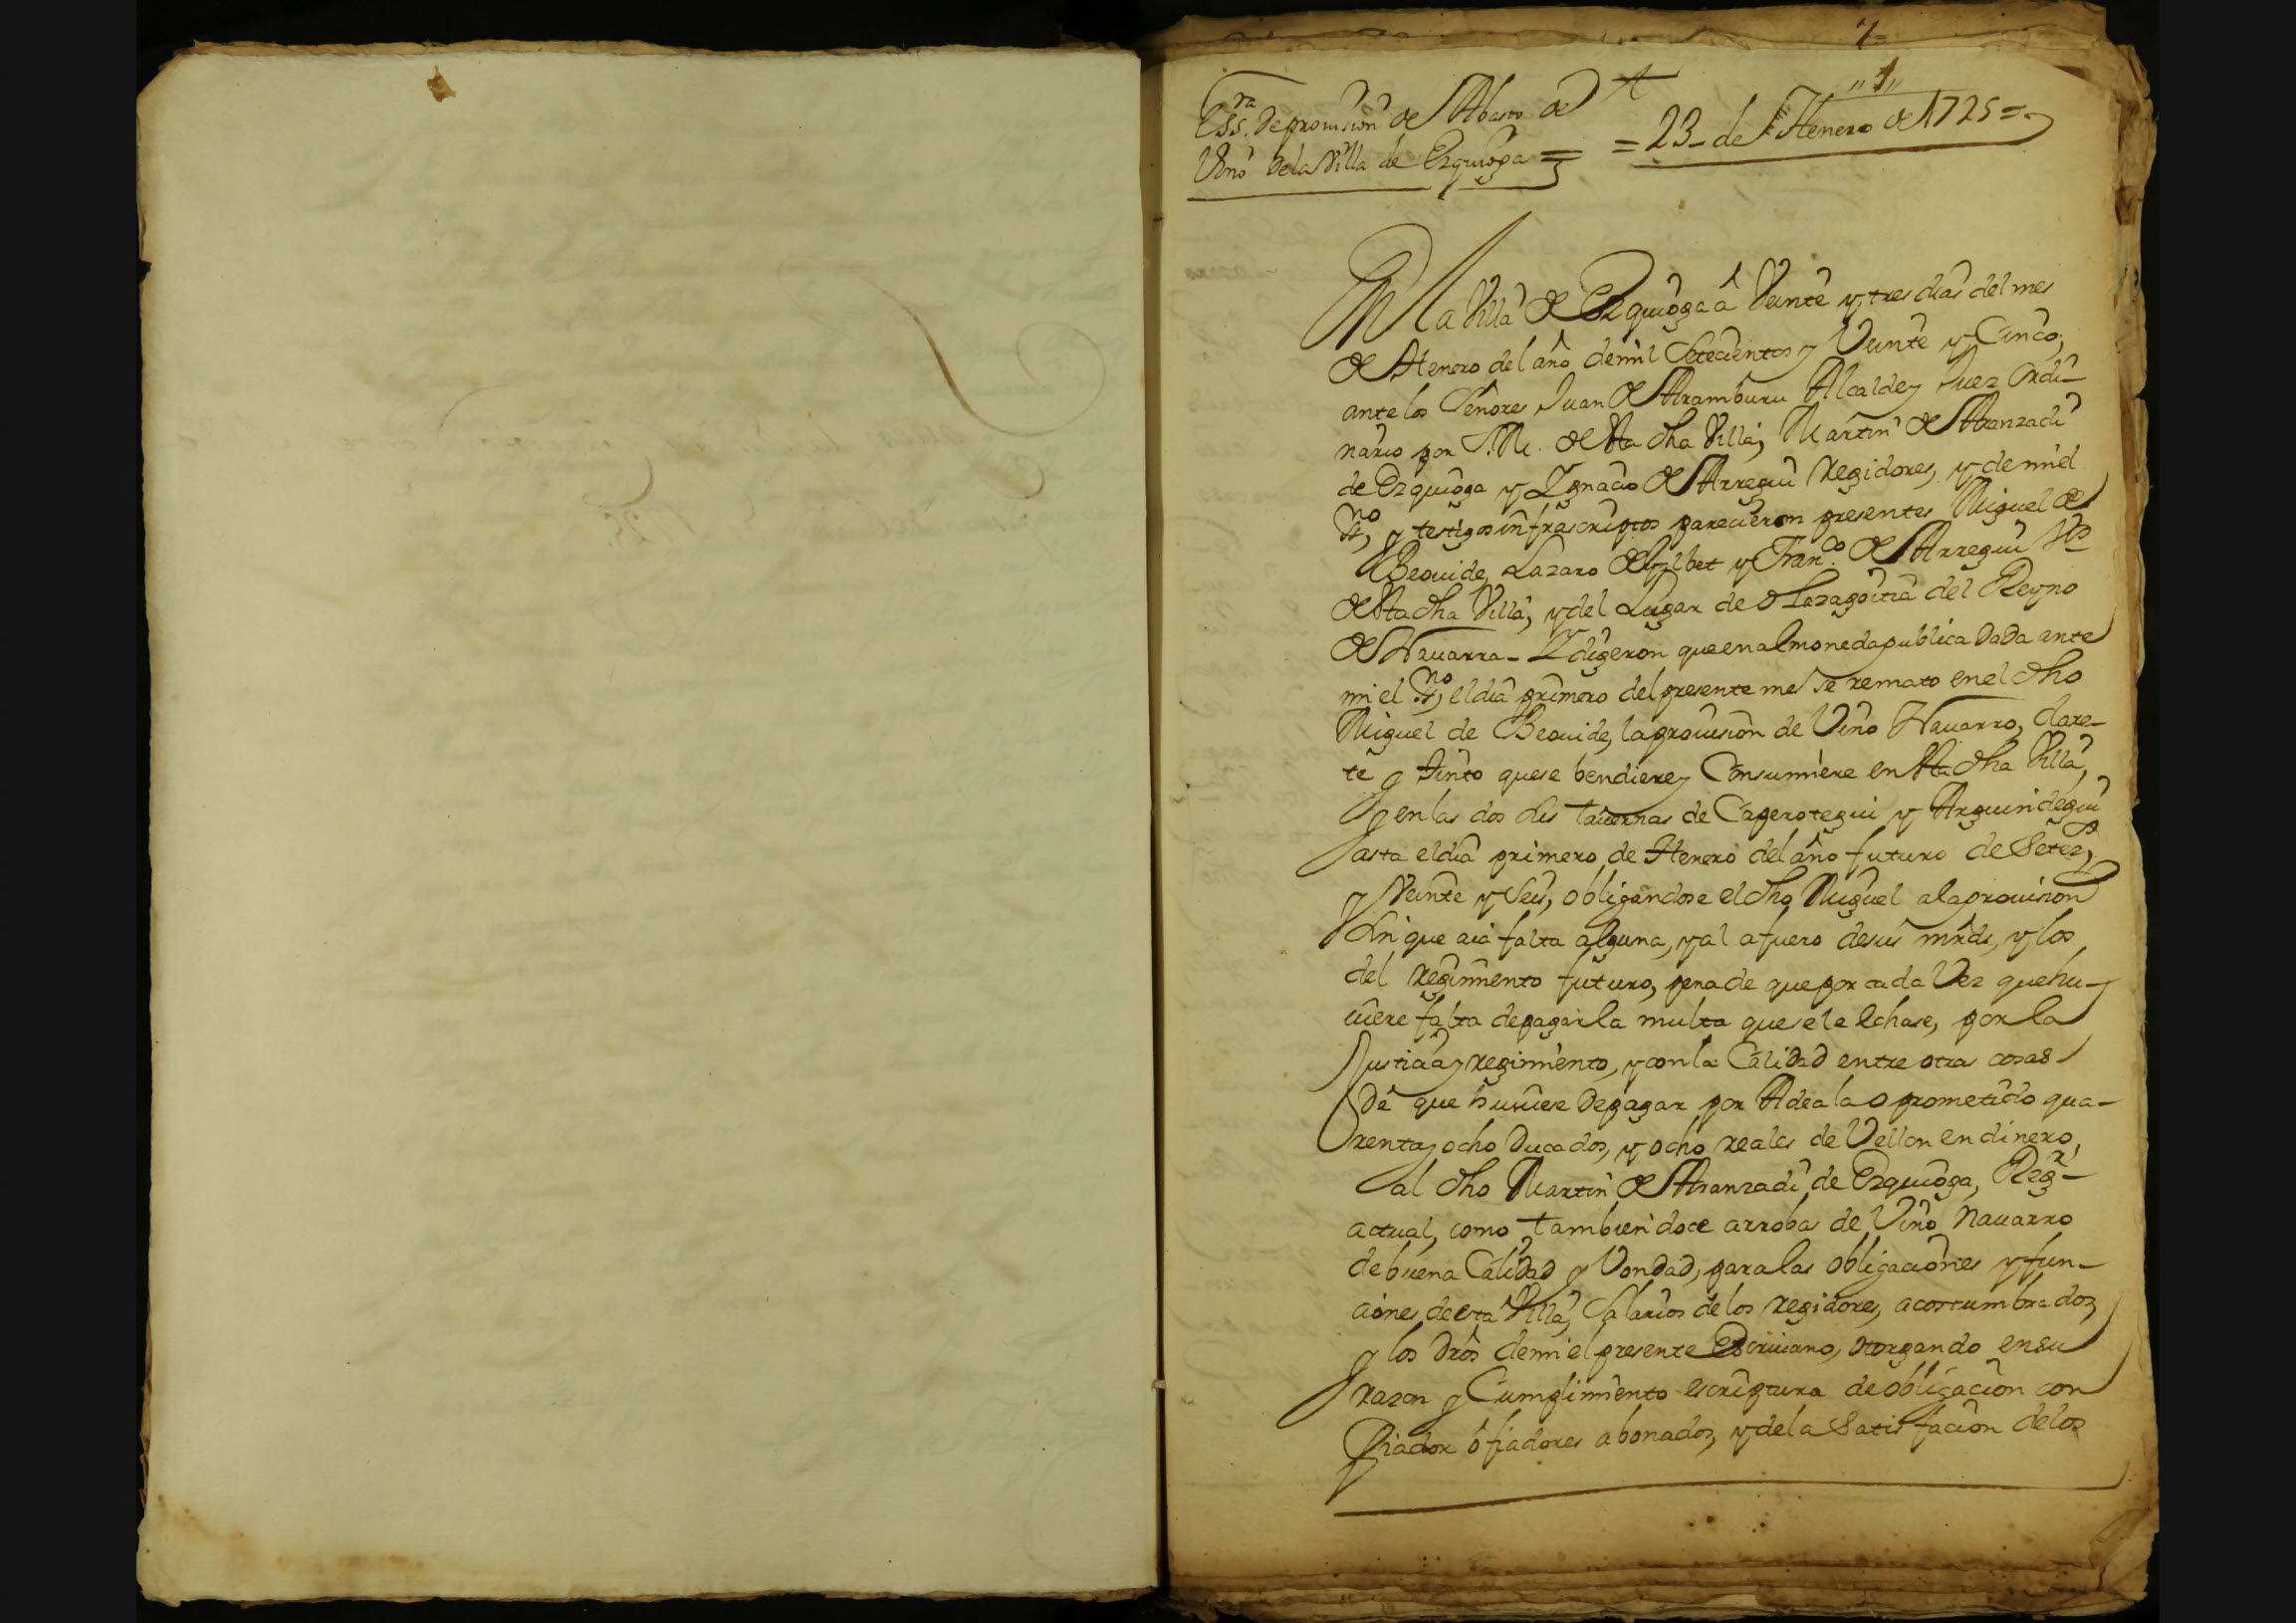 7
"1"
Ess.ra de prouision de Abasto de
Vino dela Villa de Ezquioga =
= 23_ de Henero de 1725 =
En la Villa de Ezquioga â Veinte y tres dias del mes
de Henero del año de mil Setecientos y Veinte y Cinco,
ante los Señores Juan de Aramburu Alcalde y Juez Ordi-
nario por S.M. de esta dha Villa, Martin de Aranzadi
de Ezquioga y Ygnacio de Arregui Regidores, y de mi el
ss.no, y testigos infrascriptos parecieron presentes Miguel de
Beouide, Lazaro de Gilbet y Fran.co de Arregui Vos
de esta dha Villa, y del Lugar de Olazagoitia del Reyno
de Nauarra _ Y digeron que en almoneda publica dada ante
mi el ss.no, el dia primero del presente mes se remato en el dho
Miguel de Beouide, la prouision de Vino Nauarro, clare-
te y tinto que se bendiere y Consumiere en esta dha Villa,
y en las dos sus tauernas de Caperotegui y Arguindegui
asta el dia primero de Henero del año futuro de Setez.os
y Veinte y Seis, obligandose el dho Miguel ala prouision
sin que aia falta alguna, y al afuero de sus mrds, y los
del regimiento futuro, pena de que por cada Vez que hu-
uiere falta de pagar la multa que se le echase, por la
Justicia y regimiento, y con la Calidad entre otras cosas
de que huuiese de pagar por Adeala o prometido qua-
renta y ocho Ducados, y ocho reales de Vellon en dinero,
al dho Martin de Aranzadi de Ezquioga, Reg.r
actual, como tambien doce arrobas de Vino nauarro
de buena Calidad y Vondad, para las obligaciones y fun-
ciones de esta Villa, Salarios de los regidores, acostumbrados,
y los dros de mi el presente Escriuano, otorgando en su
razon y Cumplimiento escriptura de obligacion con
fiador ô fiadores abonados, y de la Satisfacion de los